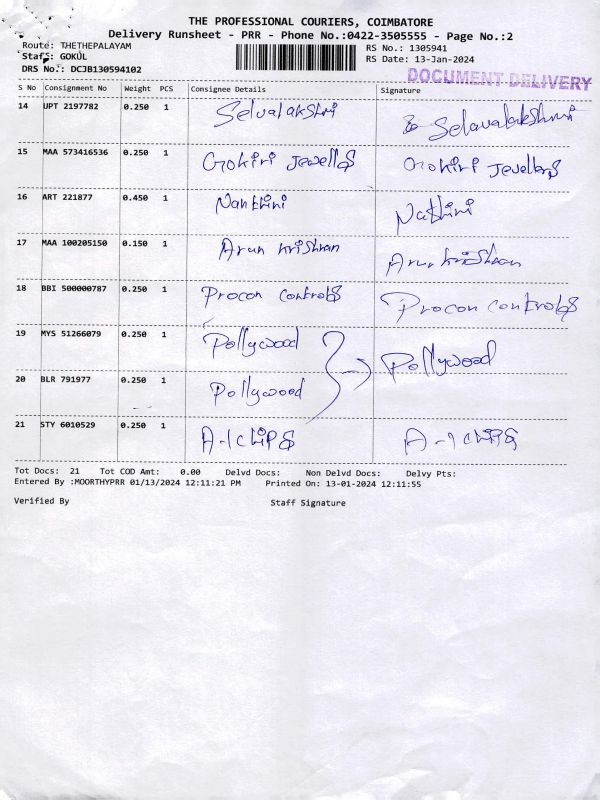 THE PROFESSIONAL COURIERS, COIMBATORE
Delivery Runsheet - PRR - Phone No.:0422-3505555 - Page No.:2
Route: THETHEPALAYAM
RS No.: 1305941
Staff: GOKUL
RS Date: 13-Jan-2024
DRS No.: DCJB130594102
DOCUMENT DELIVERY
S No Consignment No Weight PCS Consignee Details Signature
14 UPT 2197782 0.250 1 Selvalakshmi Selavalakshmi
15 MAA 573416536 0.250 1 Gokiri Jewellers Gokiri Jewellers
16 ART 221877 0.450 1 Nanthini Nathini
17 MAA 100205150 0.150 1 Arun krishnan Arun krishnan
18 BBI 500000787 0.250 1 Procon controls Procon controls
19 MYS 51266079 0.250 1 Pollywood Pollywood
20 BLR 791977 0.250 1 Pollywood
21 STY 6010529 0.250 1 A-1 CHIPS A-1 CHIPS
Tot Docs: 21 Tot COD Amt: 0.00 Delvd Docs: Non Delvd Docs: Delvy Pts:
Entered By :MOORTHYPRR 01/13/2024 12:11:21 PM Printed On: 13-01-2024 12:11:55
Verified By Staff Signature